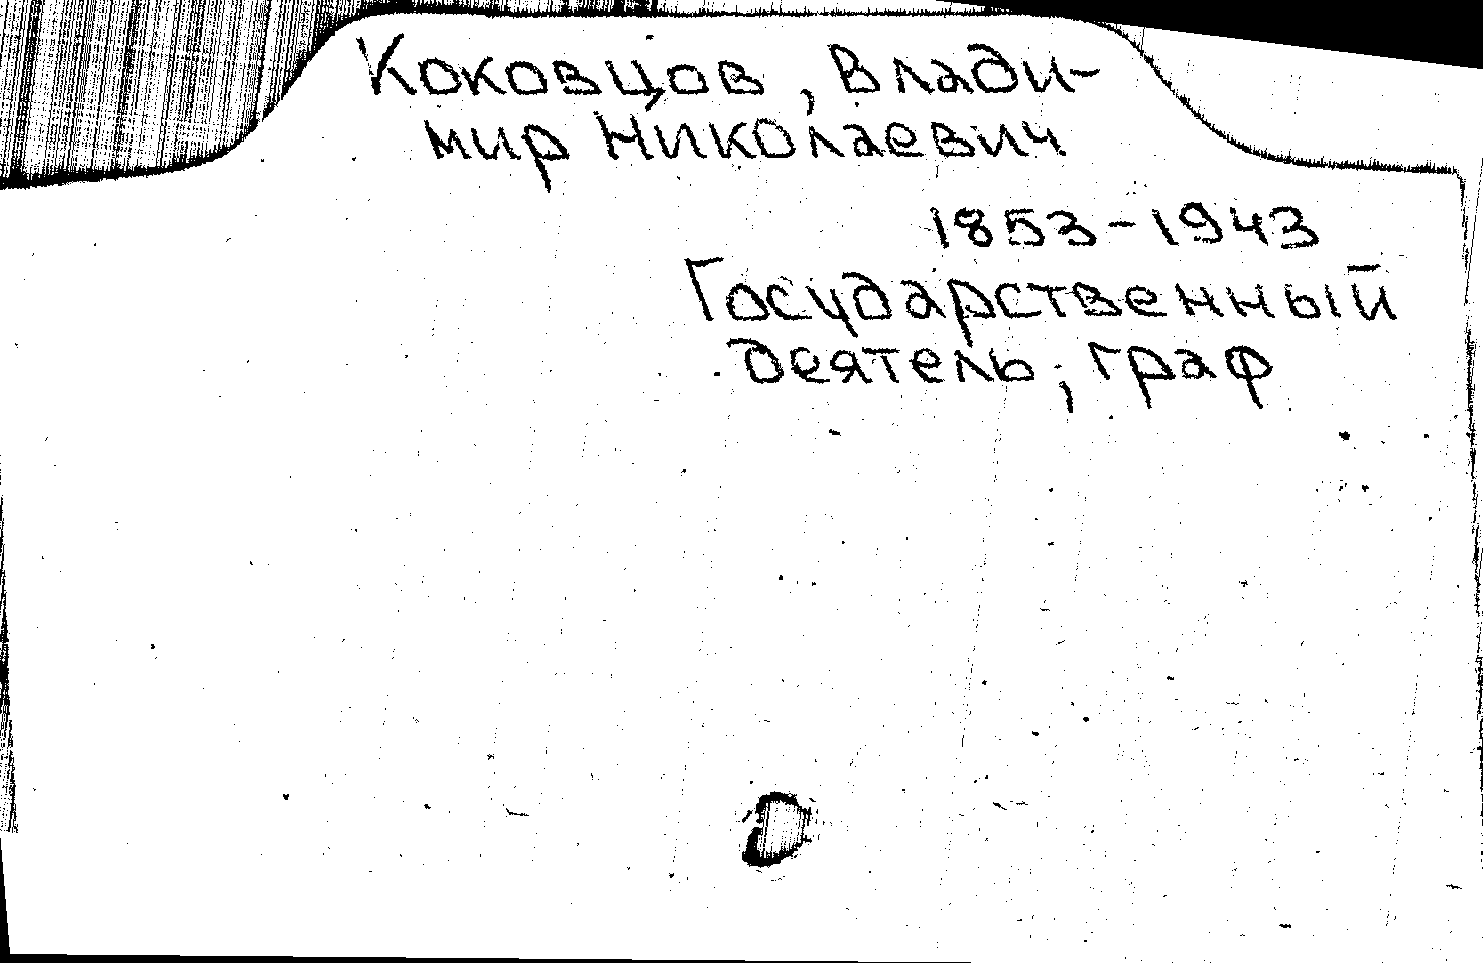 Коковцов, Влади-
мир Николаевич
1853-1943
Государственный
деятель, граф